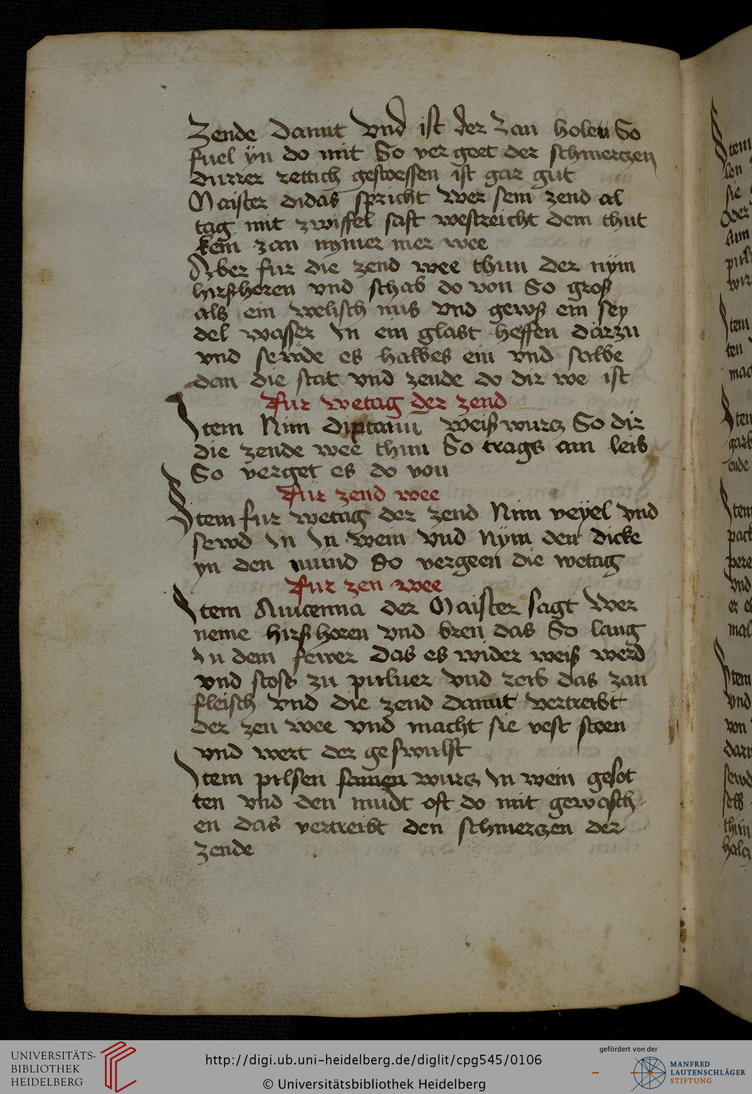 zende damit vnd ist der zan holen So
fuel yn do mit So ver geet der schmerczen
durrer rettich gestoessen ist gar gut
Maister didas spricht wer sein zend al
tag mit zwiffel saft bestreicht dem thut
kein zan nymer mer wee
Aber fur die zend wee thun der nym
hirßhoren vnd schab do von So groß
als ein welisch nus vnd gewß ein sey
del wasser In ein glast heffen darzu
vnd sewde es halbes ein vnd salbe
dan die stat vnd zende do dir we ist
Fur wetag der zend
Item Nim diptam weißwurcz So dir
die zende wee thun So trags am leib
So verget es do von
Fur zend wee
Item fur wetag der zend Nim veyel vnd
sewd In In wein vnd nym den dicke
yn den mund So vergeen die wetag
Fur zen wee
Item Auicenna der Maister sagt wer
neme hirßhoren vnd bren das So lang
In dem fewer das es wider weiß werd
vnd stoß zu puluer vnd reib das zan
fleisch vnd die zend damit vertreibt
der zen wee vnd macht sie vest steen
vnd wert der geswulst
Item pilsen samen wurcz In wein gesot
ten vnd den mudt oft do mit gewasch
en das vertreibt den schmerczen der
zende
UNIVERSITÄTS-
BIBLIOTHEK
HEIDELBERG
http://digi.ub.uni-heidelberg.de/diglit/cpg545/0106
© Universitätsbibliothek Heidelberg
gefördert von der
MANFRED
LAUTENSCHLÄGER
STIFTUNG